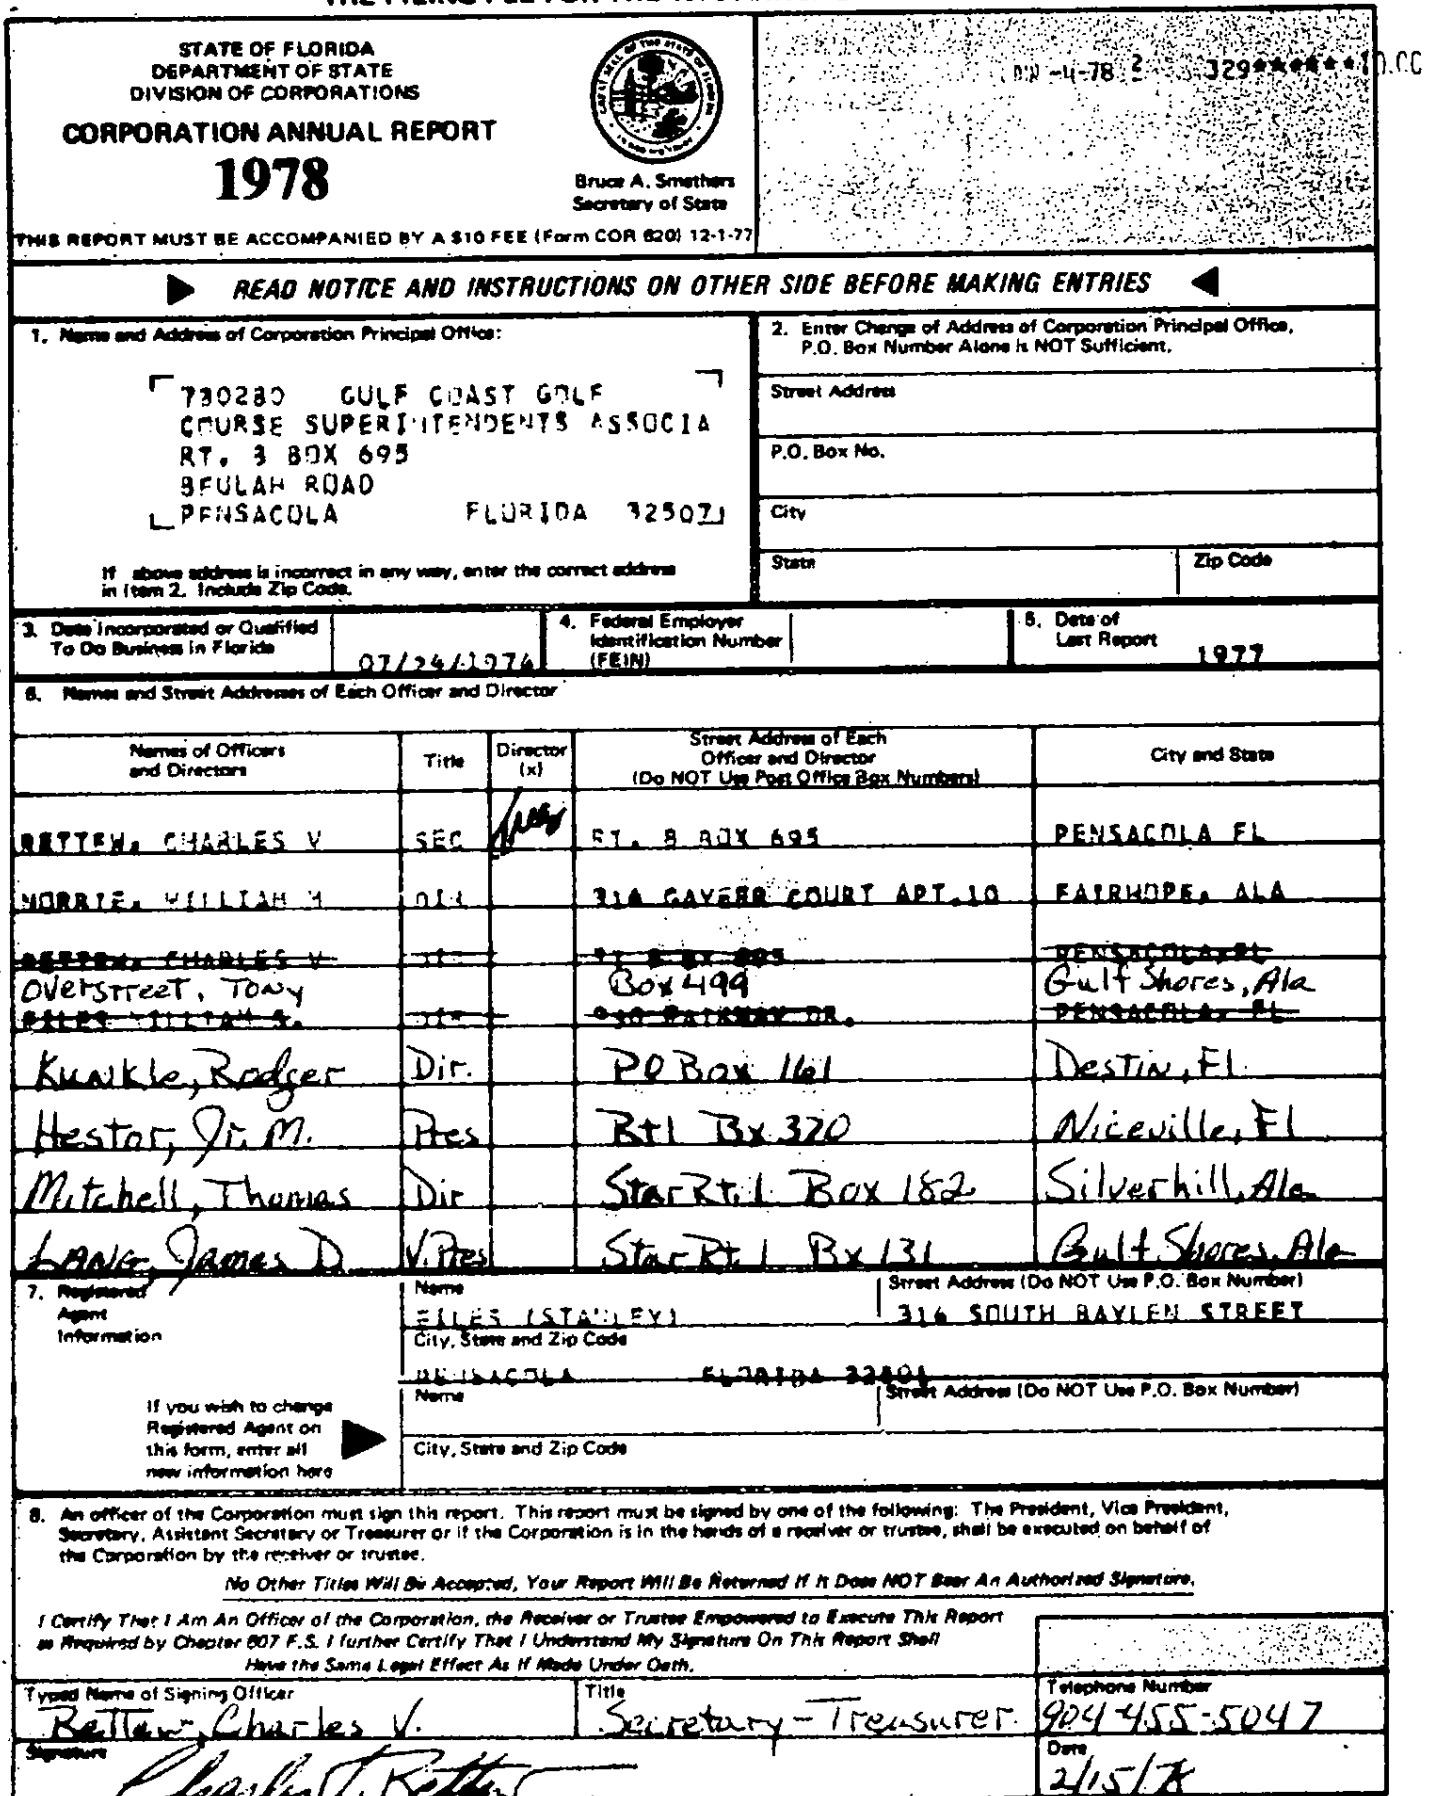 STATE OF FLORIDA
DEPARTMENT OF STATE
DIVISION OF CORPORATIONS
CORPORATION ANNUAL REPORT
1978
Bruce A. Smathers
Secretary of State
-4-78 2 329******10.00
THIS REPORT MUST BE ACCOMPANIED BY A $10 FEE (Form COR 620) 12-1-77
READ NOTICE AND INSTRUCTIONS ON OTHER SIDE BEFORE MAKING ENTRIES
1. Name and Address of Corporation Principal Office:
730280 GULF COAST GOLF
COURSE SUPERINTENDENTS ASSOCIA
RT. 8 BOX 695
BEULAH ROAD
PENSACOLA FLORIDA 32507
If above address is incorrect in any way, enter the correct address
in Item 2. Include Zip Code.
2. Enter Change of Address of Corporation Principal Office,
P.O. Box Number Alone is NOT Sufficient.
Street Address
P.O. Box No.
City
State Zip Code
3. Date Incorporated or Qualified
To Do Business in Florida
07/24/1974
4. Federal Employer
Identification Number
(FEIN)
5. Date of
Last Report
1977
6. Names and Street Addresses of Each Officer and Director
Names of Officers
and Directors
Title
Director
(x)
Street Address of Each
Officer and Director
(Do NOT Use Post Office Box Numbers)
City and State
RETTEW, CHARLES V SEC RT. 8 BOX 695 PENSACOLA FL
NORRIE, WILLIAM M DIR COURT APT.10 FAIRHOPE, ALA
RETTEW, CHARLES V DIR RT 8 BX 695 PENSACOLA, FL
Overstreet, Tony Box 499 Gulf Shores, Ala
WILLIAM S. DIR PARKWAY DR. PENSACOLA, FL
Kunkle, Rodger Dir. PO Box 161 Destin, Fl.
Hestor, Jr. M. Pres Rt 1 Bx 320 Niceville, Fl
Mitchell, Thomas Dir Star Rt. 1 Box 182 Silverhill, Ala
LANG, James D V. Pres Star Rt. 1 Bx 131 Gulf Shores, Ala
7. Registered
Agent
Information
Name
FILES (STANLEY)
Street Address (Do NOT Use P.O. Box Number)
316 SOUTH BAYLEN STREET
City, State and Zip Code
PENSACOLA FLORIDA 32501
If you wish to change
Registered Agent on
this form, enter all
new information here
Name
Street Address (Do NOT Use P.O. Box Number)
City, State and Zip Code
8. An officer of the Corporation must sign this report. This report must be signed by one of the following: The President, Vice President,
Secretary, Assistant Secretary or Treasurer or if the Corporation is in the hands of a receiver or trustee, shall be executed on behalf of
the Corporation by the receiver or trustee.
No Other Titles Will Be Accepted, Your Report Will Be Returned If It Does NOT Bear An Authorized Signature.
I Certify That I Am An Officer of the Corporation, the Receiver or Trustee Empowered to Execute This Report
as Required by Chapter 607 F.S. I further Certify That I Understand My Signature On This Report Shall
Have the Same Legal Effect As If Made Under Oath.
Typed Name of Signing Officer
Rettew, Charles V.
Title
Secretary-Treasurer
Telephone Number
904-455-5047
Signature
Charles V. Rettew
Date
2/15/78